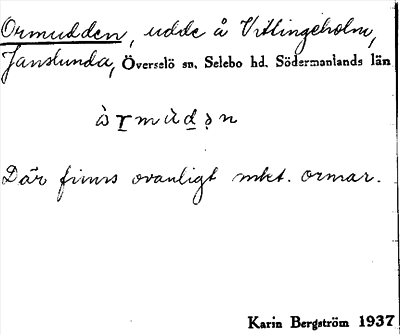 Ormudden, udde å Vitlingeholm,
Janslunda, Överselö sn, Selebo hd, Södermanlands län
Där finns ovanligt mkt. ormar.
Karin Bergström 1937